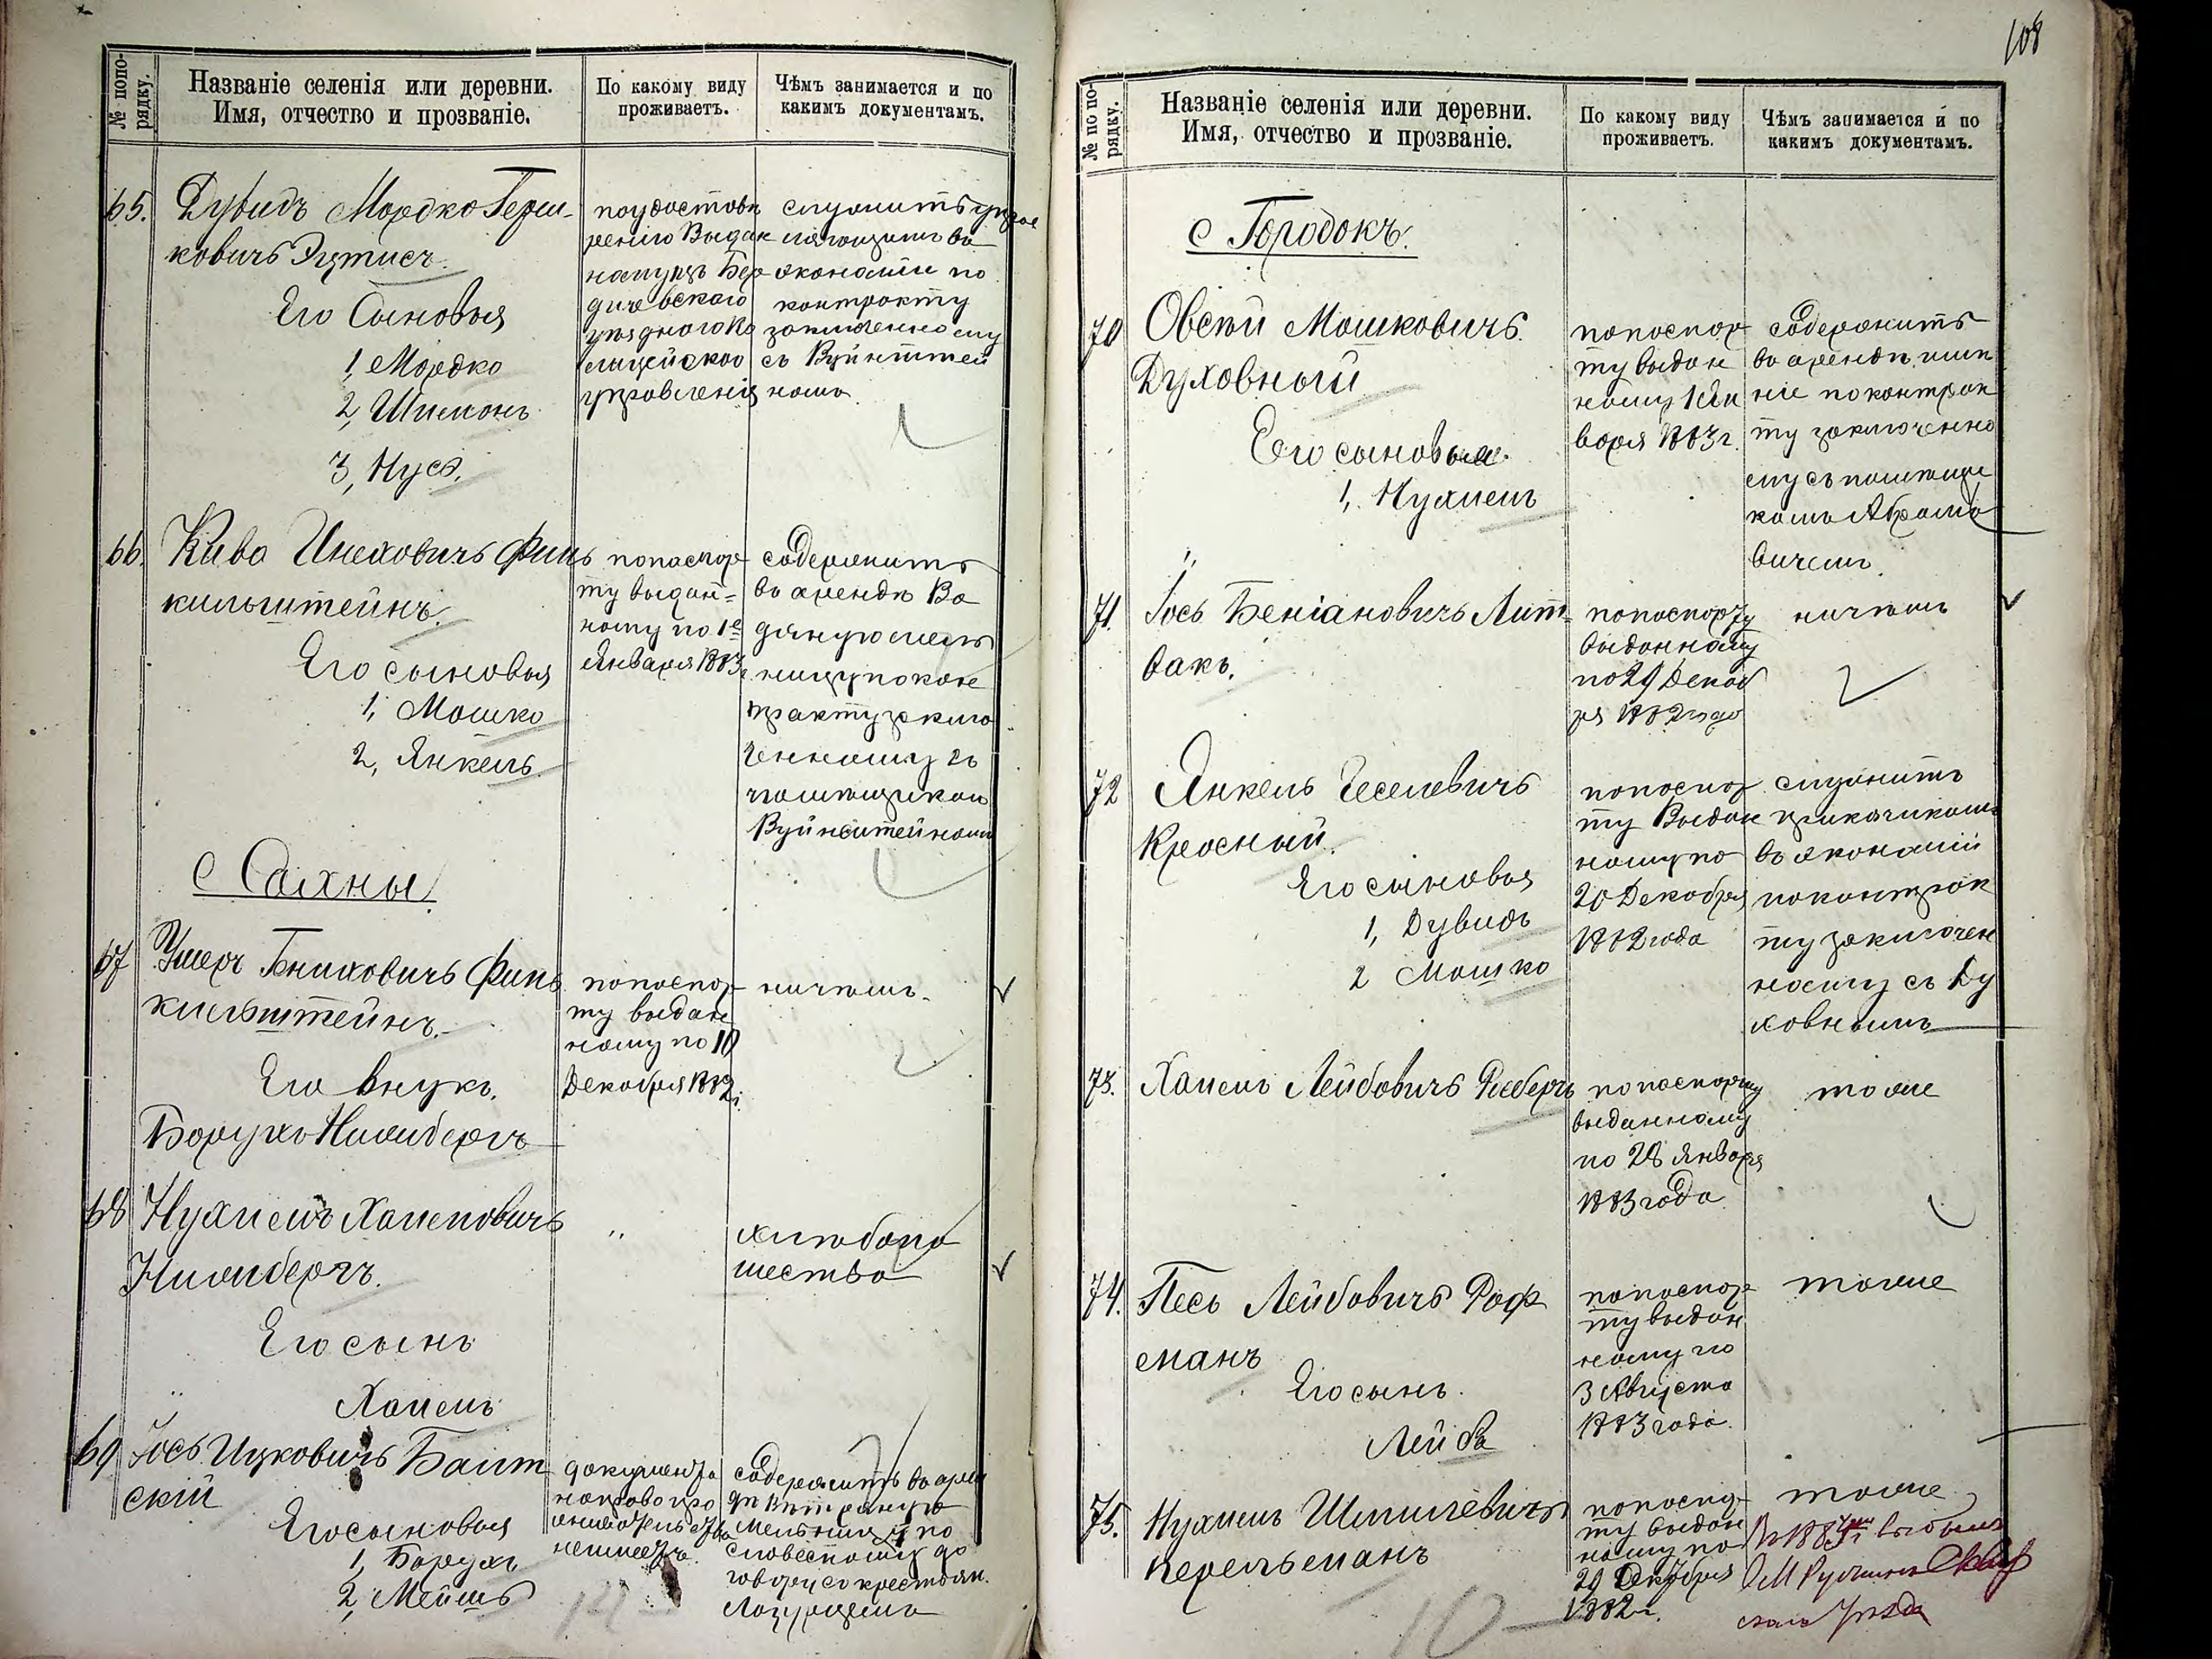 № попо-
рядку.
Названіе селенія или деревни.
Имя, отчество и прозваніе.
По какому виду
проживаетъ.
Чѣмъ занимается и по
какимъ документамъ.
65.
Дувидъ Мордко Герш-
ковичъ
Его Сыновья
1, Мордко
2, Шимонъ
3, Нусъ.
по удостовѣ
ренію Выдан
ному изъ Бер
дичевскаго
уѣзднаго по
лицейскаго
управленія
служитъ
въ
экономіи по
контракту
заключенному
съ Вуйнштей
номъ
66.
Кива Инеховичъ Фин
кильштейнъ.
Его сыновья
1, Мошко
2, Янкель.
по паспор
ту выдан=
ному по 1е
Января 1883
содержитъ
въ арендѣ Во
дяную мель
ницу по кон
тракту заклю
ченному съ
помѣщикомъ
Вуйнштейномъ
с Сахны
67
Ушеръ Гениховичъ Финь
кильштейнъ.
Его внукъ.
Борухъ Нимбергъ
по паспор
ту выдан
ному по 10
Декабря 1882г.
ничѣмъ.
68
Нухимъ Хаимовичъ
Нимбергъ.
Его сынъ
Хаимъ
"
хлѣбопа
шество
69
Іось Ицковичъ Балт
скій
Его сыновья
1, Борухъ
2, Мейшъ
документа
на право про
жительства
не имѣетъ.
содержитъ въ арен
дѣ Вѣтряную
мельницу по
словесному до
говору съ крестьян.
108
№ по по-
рядку.
Названіе селенія или деревни.
Имя, отчество и прозваніе.
По какому виду
проживаетъ.
Чѣмъ занимается и по
какимъ документамъ.
с Городокъ.
70
Овсѣй Мошковичъ
Духовный
Его сыновья
1, Нухимъ
по паспор
ту выдан
ному 1 Ян
варя 1883г.
содержитъ
въ арендѣ имѣ
ніе по контрак
ту заключенно
му съ помѣщи
комъ Абрамо
вичемъ.
71.
Іось Беніановичъ Лит=
вакъ.
по паспорту
выданному
по 29 Декаб
ря 1882 года
ничѣмъ
72
Янкель Геселевичъ
Красный.
Его сыновья
1, Дувидъ
2 Мошко
по паспор
ту Выдан
ному по
20 Декабря
1882 года
служитъ
прикащикомъ
въ экономіи
по контрак
ту заключен
ному съ Ду
ховнымъ
73.
Хаимъ Лейбовичъ
по паспорту
выданному
по 28 Января
1883 года
тоже
74.
Песь Лейбовичъ Роф
манъ
Его сынъ.
Лейба
по паспор
ту выдан
ному по
3 Августа
1883 года.
тоже
75.
Нухимъ Шмилевичъ
Перельманъ
по паспор
ту выдан
ному по
29 Декабря
1882г.
тоже
выбылъ
Уѣзда
10